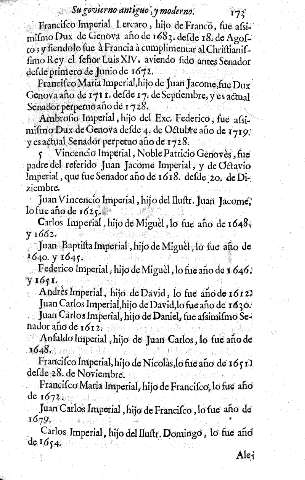 Su govierno antiguo, y moderno. 175
Francisco Imperial Lercaro, hijo de Franco, fue asi-
mismo Dux de Genova año de 1682. desde 18. de Agos-
to; y siendolo fue à Francia à cumplimentar al Christianis-
simo Rey el señor Luis XIV. aviendo sido antes Senador
desde primero de Junio de 1672.
Francisco Maria Imperial, hijo de Juan Jacome, fue Dux
Genova año de 1711. desde 17. de Septiembre, y es actual
Senador perpetuo año de 1728.
Ambrosio Imperial, hijo del Exc. Federico, fue assi-
mismo Dux de Genova desde 4. de Octubre año de 1719.
y es actual Senador perpetuo año de 1728.
5 Vincencio Imperial, Noble Patricio Genovès, fue
padre del referido Juan Jacome Imperial, y de Octavio
Imperial, que fue Senador año de 1618. desde 20. de Di-
ziembre.
Juan Vincencio Imperial, hijo del Ilustr. Juan Jacome,
lo fue año de 1625.
Carlos Imperial, hijo de Miguèl, lo fue año de 1648.
y 1662.
Juan Baptista Imperial, hijo de Miguèl, lo fue año de
1640. y 1645.
Federico Imperial, hijo de Miguèl, lo fue año de 1646.
y 1651.
Andrès Imperial, hijo de David, lo fue año de 1612.
Juan Carlos Imperial, hijo de David, lo fue año de 1620.
Juan Carlos Imperial, hijo de Daniel, fue assimismo Se-
nador año de 1612.
Ansaldo Imperial, hijo de Juan Carlos, lo fue año de
1648.
Francisco Imperial, hijo de Nicolàs, lo fue año de 1651.
desde 28. de Noviembre.
Francisco Maria Imperial, hijo de Francisco, lo fue año
de 1672.
Juan Carlos Imperial, hijo de Francisco, lo fue año de
1679.
Carlos Imperial, hijo del Ilustr. Domingo, lo fue año
de 1654.
Ale-